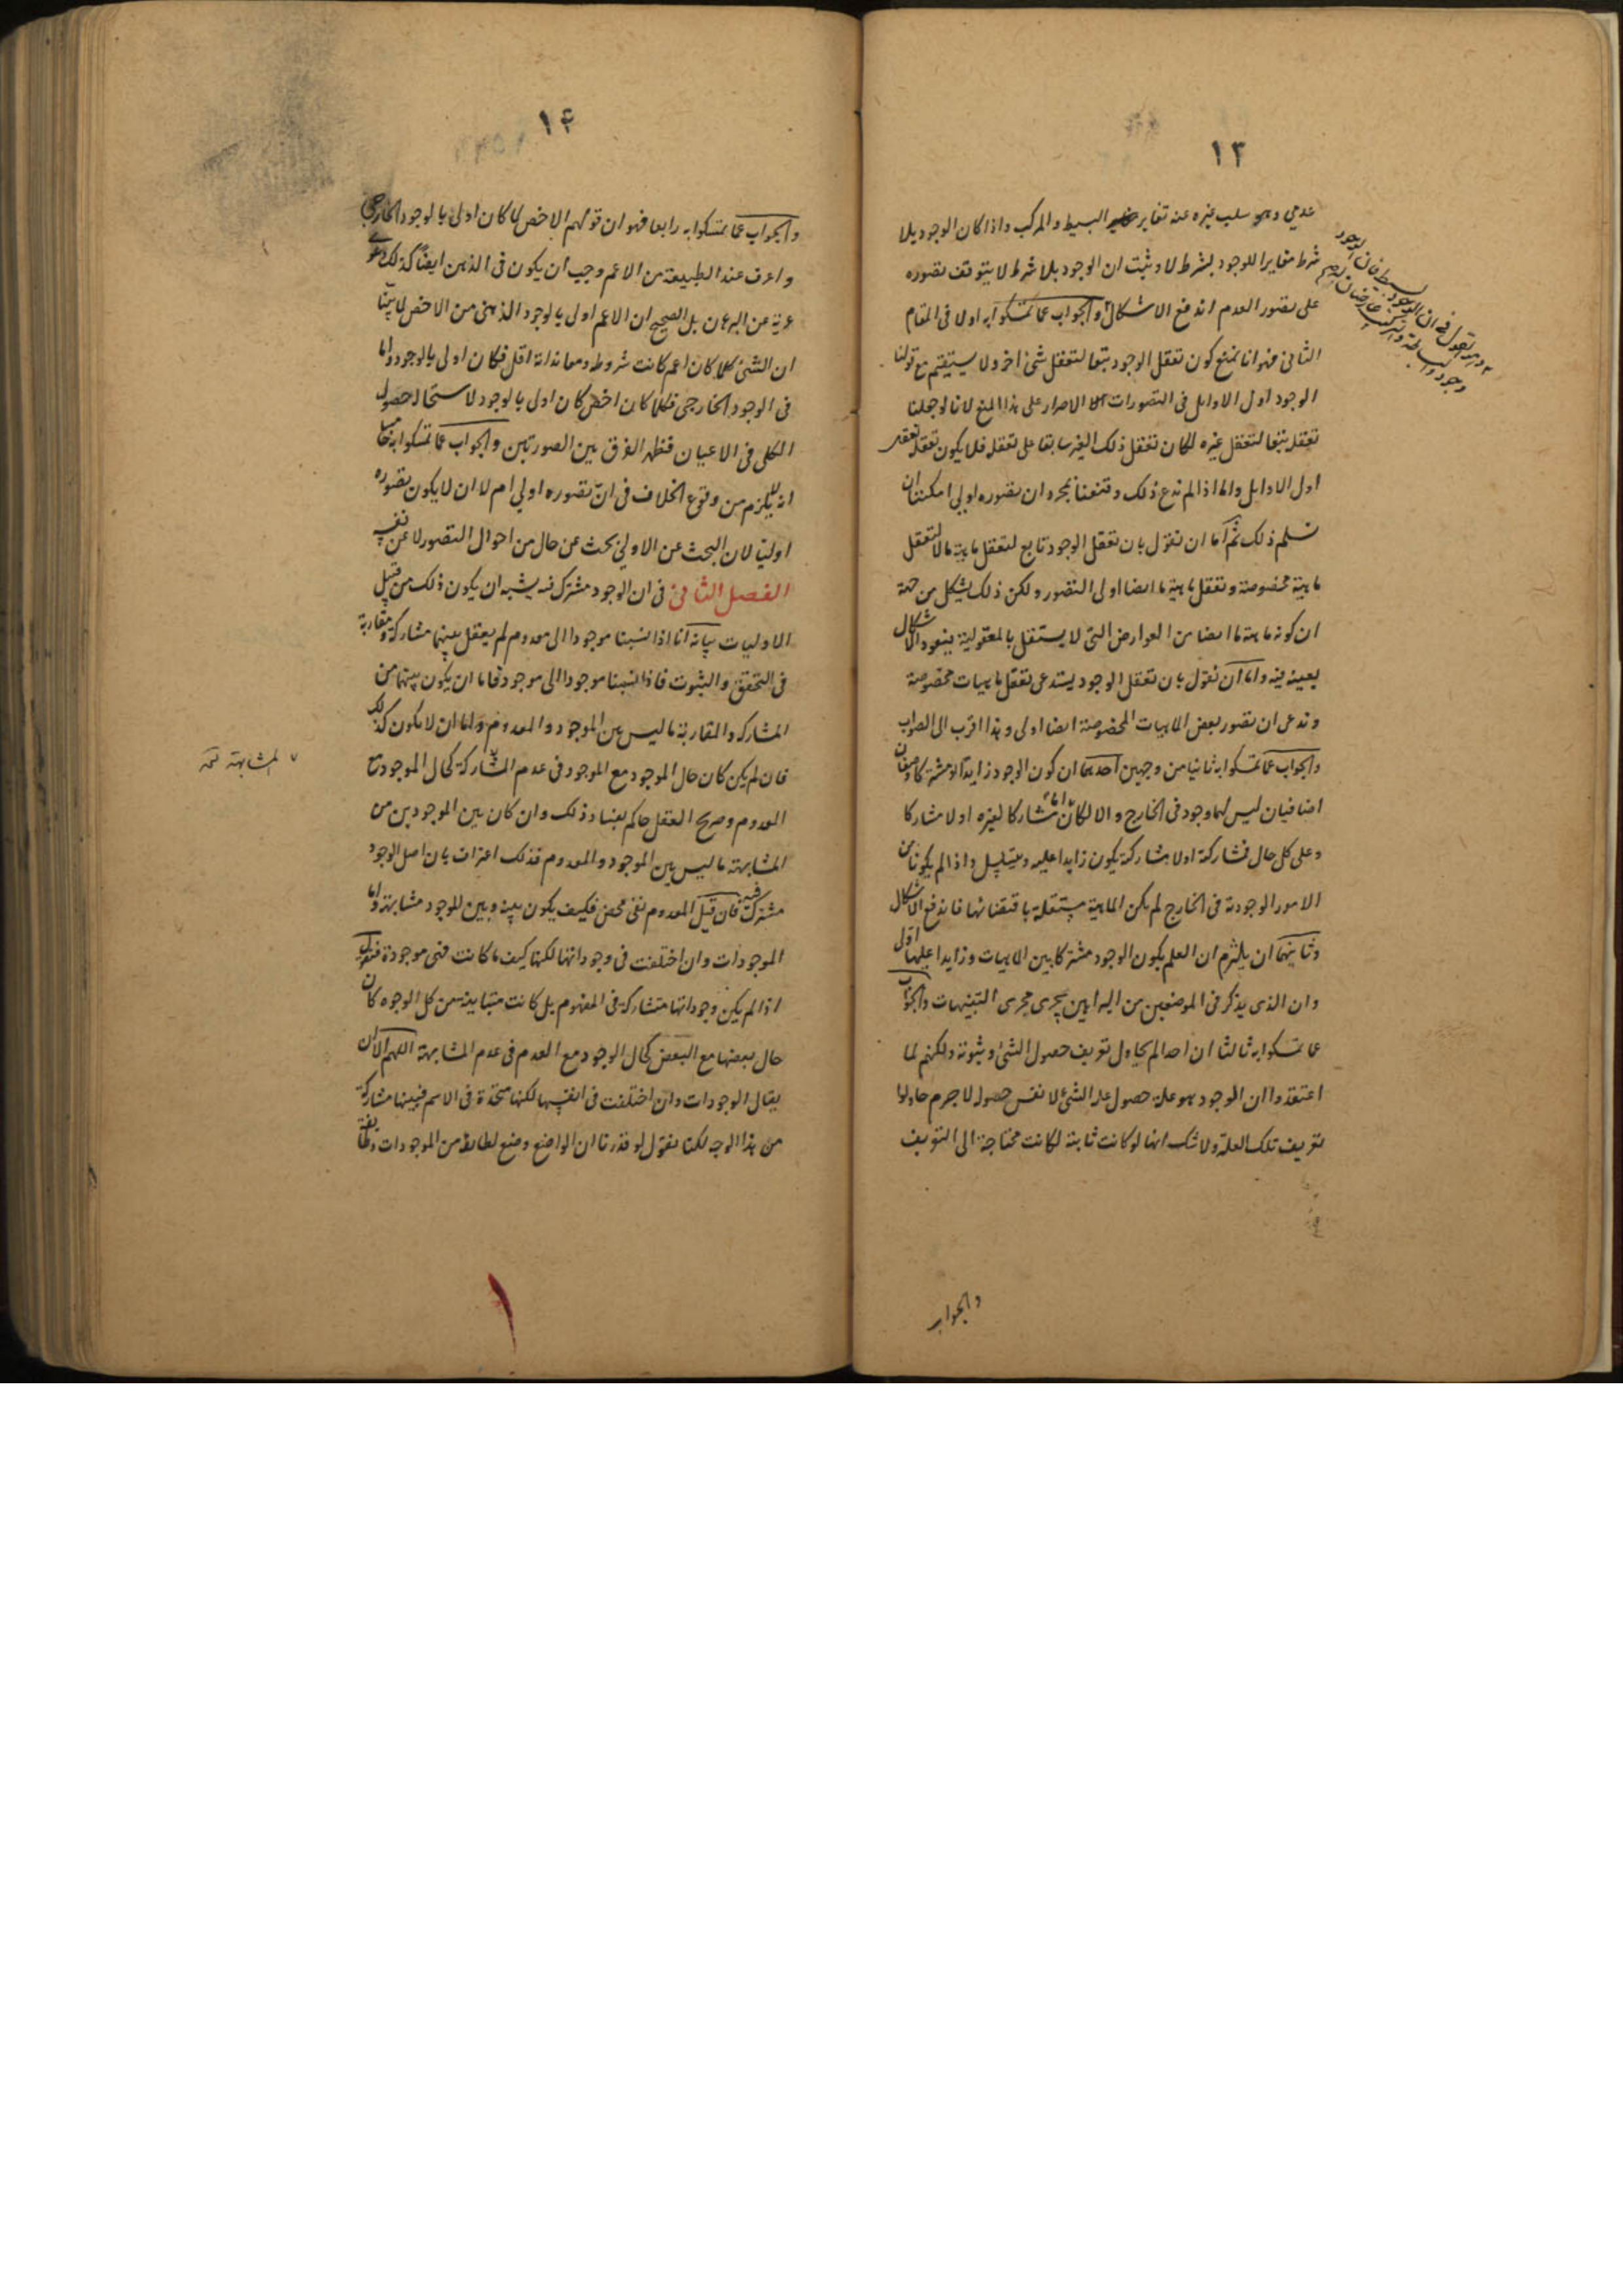 ١٣
عدمي وهو سلب غيره عنه تغاير البسيط والمركب واذا كان الوجود بلا
شرط مغايرا للوجود بشرط لا وثبت ان الوجود بلا شرط لا يتوقف تصوره
على تصور العدم اندفع الاشكال والجواب عما تمسكوا به اولا فى المقام
الثانى فهو انا نمنع كون تعقل الوجود تبعا لتعقل شئ اخر ولا يستقيم مع قولنا
الوجود اول الاوايل فى التصورات الا الاصرار على هذا المنع لانا لو جعلنا
تعقله تبعا لتعقل غيره لكان تعقل ذلك الغير سابقا على تعقله فلا يكون تعقله
اول الاوايل واما اذا لم ندع ذلك وقنعنا بمجرد ان تصوره اولى امكننا ان
نسلم ذلك ثم اما ان نقول بان تعقل الوجود تابع لتعقل ماهية ما لا لتعقل
ماهية مخصوصة وتعقل ماهية ما ايضا اولى التصور ولكن ذلك يشكل من جهة
ان كونه ماهية ما ايضا من العوارض التى لا يستقل بالمعقولية فيعود الاشكال
بعينه فيه واما ان نقول بان تعقل الوجود يستدعى تعقل ماهيات مخصوصة
وندعى ان تصور بعض الماهيات المخصوصة ايضا اولى وهذا اقرب الى الصواب
والجواب عما تمسكوا به ثانيا من وجهين احدهما ان كون الوجود زايدا او مشتركا وصفان
اضافيان ليس لهما وجود فى الخارج والا لكان اما مشاركا لغيره او لا مشاركا
وعلى كل حال فمشاركته او لا مشاركته يكون زايدا عليه ويتسلسل واذا لم يكونا من
الامور الوجودية فى الخارج لم يكن الماهية مستقلة باقتضائها فاندفع الاشكال
وثانيهما ان يلتزم ان العلم بكون الوجود مشتركا بين الماهيات وزايدا عليها اولى
وان الذى يذكر فى الموضعين من البراهين يجرى مجرى التنبيهات والجواب
عما تمسكوا به ثالثا ان احدا لم يحاول تعريف حصول الشئ وثبوته ولكنهم لما
اعتقدوا ان الوجود هو علة حصول الشئ لا نفس حصوله لا جرم حاولوا
تعريف تلك العلة ولا شك انها لو كانت ثابتة لكانت محتاجة الى التعريف
والجواب
١٤
والجواب عما تمسكوا به رابعا فهو ان قولهم الاخص لما كان اولى بالوجود الخارجى
واعرف عند الطبيعة من الاعم وجب ان يكون فى الذهن ايضا كذلك دعوى
عرية عن البرهان بل الصحيح ان الاعم اولى بالوجود الذهنى من الاخص لما بينا
ان الشئ كلما كان اعم كانت شروطه ومعانداته اقل فكان اولى بالوجود واما
فى الوجود الخارجى فكلما كان اخص كان اولى بالوجود لاستحالة حصول
الكلى فى الاعيان فظهر الفرق بين الصورتين والجواب عما تمسكوا به خامسا
انه لا يلزم من وقوع الخلاف فى ان تصوره اولى ام لا ان لا يكون تصوره
اوليا لان البحث عن الاولى بحث عن حال من احوال التصور لا عن نفسه
الفصل الثانى فى ان الوجود مشترك فيه يشبه ان يكون ذلك من قبيل
الاوليات بيانه انا اذا نسبنا موجودا الى معدوم لم يعقل بينهما مشاركة ومقاربة
فى التحقق والثبوت فاذا نسبنا موجودا الى موجود فاما ان يكون بينهما من
المشاركة والمقاربة ما ليس بين الموجود والمعدوم واما ان لا يكون كذلك
فان لم يكن كان حال الموجود مع الموجود فى عدم المشاركة كحال الموجود مع
المعدوم وصريح العقل حاكم بفساد ذلك وان كان بين الموجودين من
المشابهة ما ليس بين الموجود والمعدوم فذلك اعتراف بان اصل الوجود
مشترك فيه فان قيل المعدوم نفى محض فكيف يكون بينه وبين الموجود مشابهة واما
الموجودات وان اختلفت فى وجوداتها لكنها كيف ما كانت فهى موجودة فنقول
اذا لم يكن وجوداتها متشاركة فى المفهوم بل كانت متباينة من كل الوجوه كان
حال بعضها مع البعض كحال الوجود مع العدم فى عدم المشابهة اللهم الا ان
يقال الوجودات وان اختلفت فى انفسها لكنها متحدة فى الاسم فبينها مشاركة
من هذا الوجه لكنا نقول لو قدرنا ان الواضع وضع لطائفة من الموجودات وطائفة
المشابهة نخه